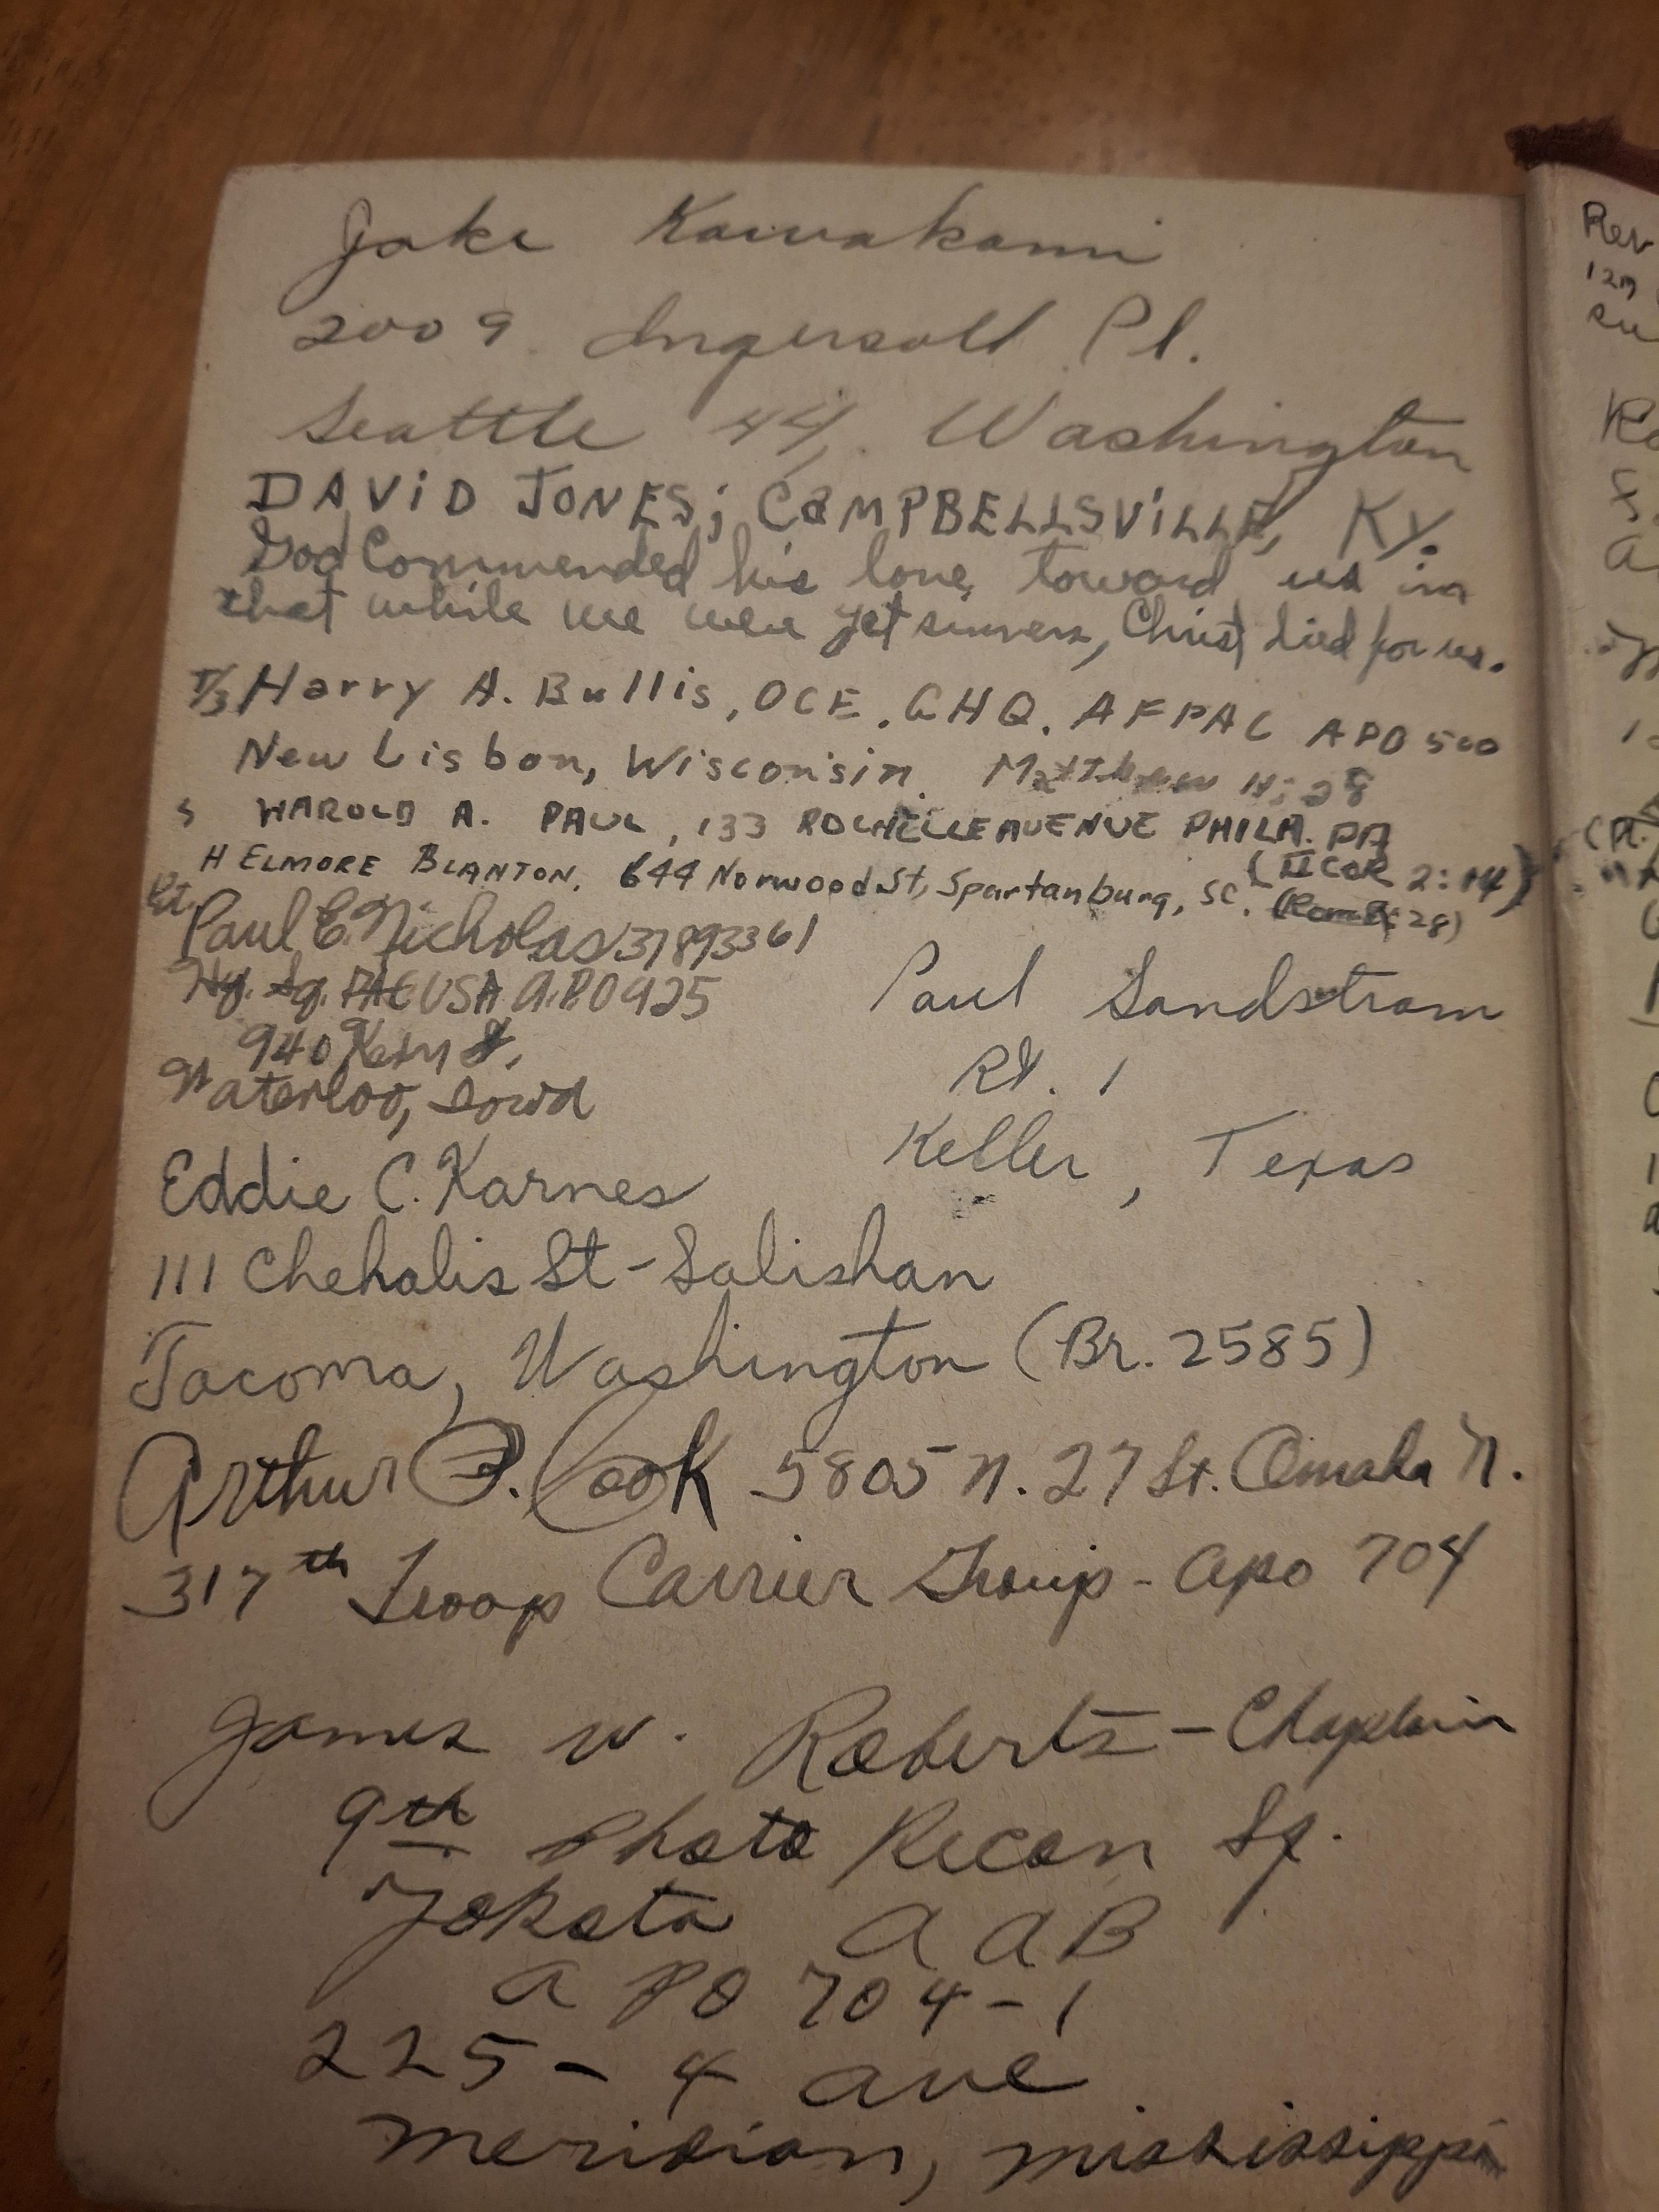 Jake Kawakami
2009 Ingersoll Pl.
Seattle 44, Washington
DAViD JONES; CAMPBELLSViLLE, KY.
God Commended his love toward us in
that while we were yet sinners, Christ died for us.
T/3 Harry A. Bullis, OCE, GHQ, AFPAC APO 500
New Lisbon, Wisconsin. Matthew 11:28
S HAROLD A. PAUL, 133 ROCHELLE AVENUE PHILA. PA
(II COR 2:14)
H ELMORE BLANTON, 644 Norwood St, Spartanburg, SC. (Rom 8:28)
Paul E. Nicholas 37893361
Hq. Sq. USA A.P.O 925
940 St.
Waterloo, Iowa
Paul Sandstrom
Rt. 1
Keller, Texas
Eddie C. Karnes
111 Chehalis St - Salishan
Tacoma, Washington (Br. 2585)
Arthur P. Cook 5805 N. 27 St. Omaha N.
317th Troop Carrier Group - Apo 704
James W. Roberts - Chaplain
9th Photo Recon Sq.
Yokota AAB
APO 704-1
225 - 4 ave
Meridian, Mississippi
Rev
129